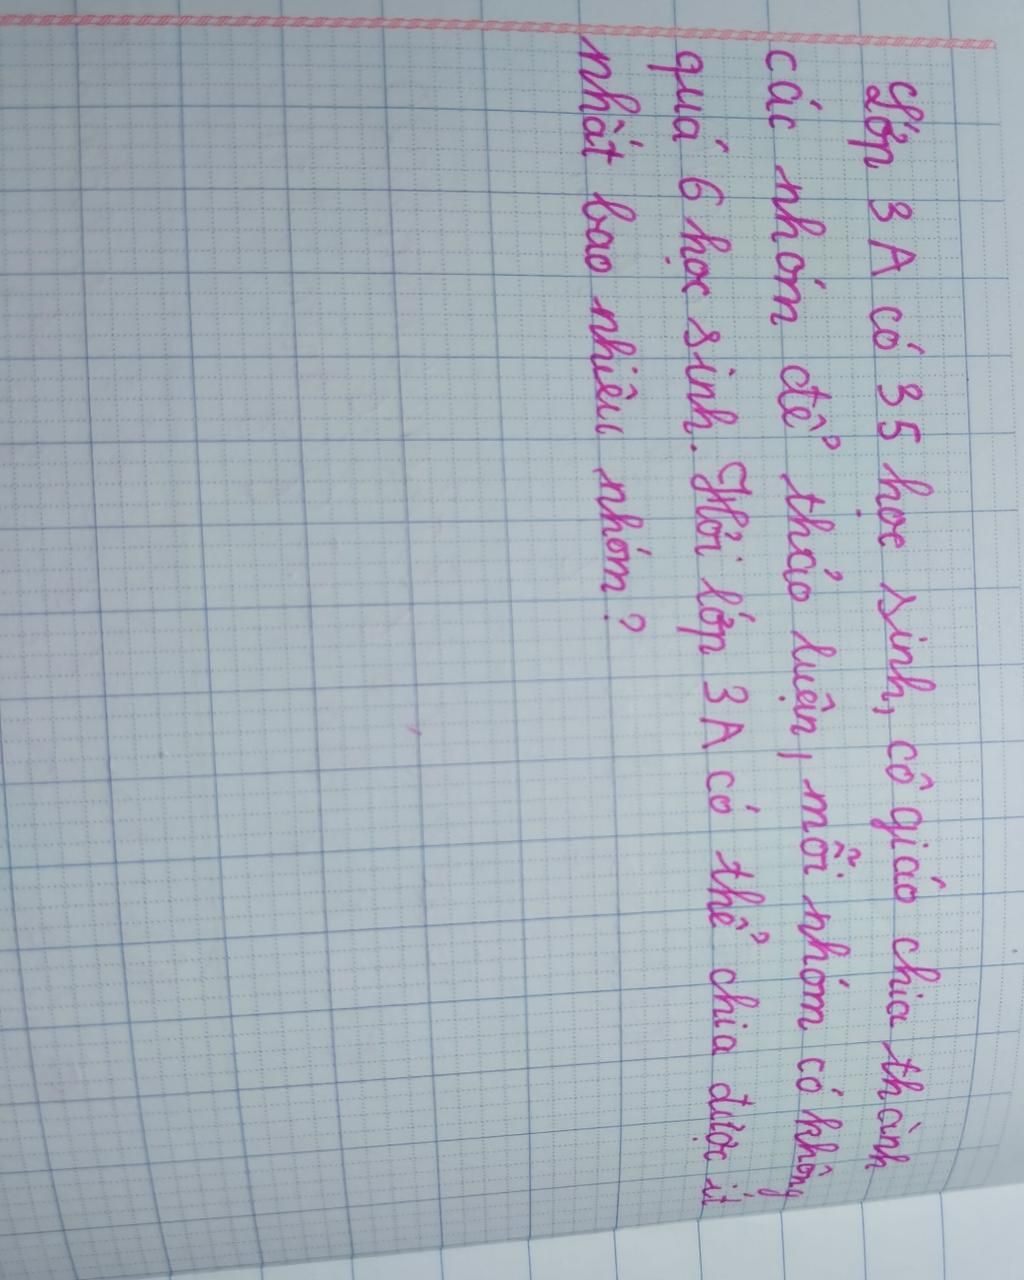 Lớp 3A có 35 học sinh, cô giáo chia thành
các nhóm để thảo luận, mỗi nhóm có không
quá 6 học sinh. Hỏi lớp 3A có thể chia được ít
nhất bao nhiêu nhóm?